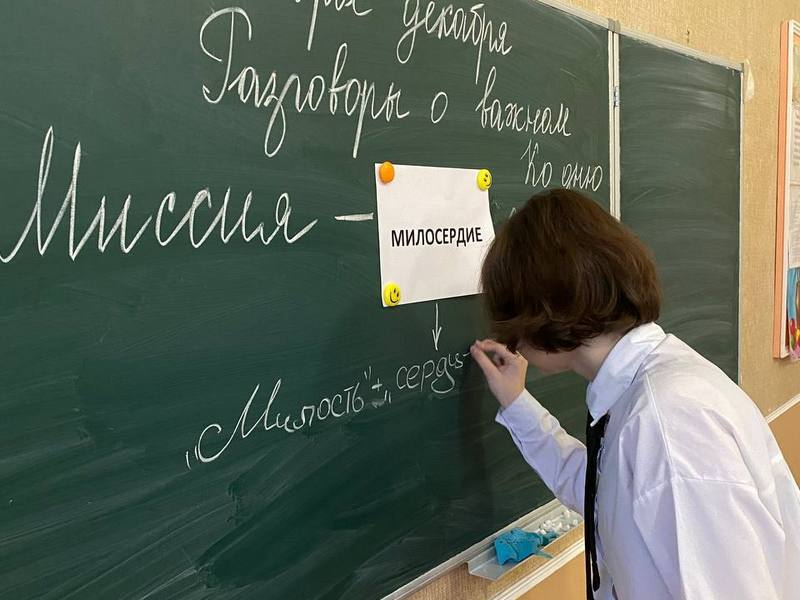 декабря
Разговоры о важном
Ко дню
Миссия – МИЛОСЕРДИЕ
"Милость"+"серд